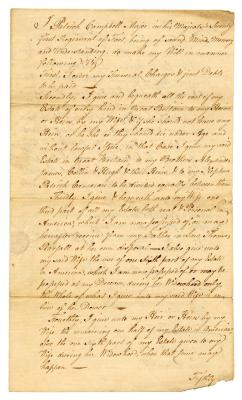 I Patrick Campbell Major in his Majesty's Seventy
first Regiment of Foot being of sound Mind, Memory
and Understanding do make my Will in manner
following Viz
First, I order my Funeral Charges & just Debts
to be paid
Secondly, I give and bequeath all the rest of my
Estate of every kind in Great Britain to my Heir
or Heirs by my Wife & I should not have any
Heir, or he she or they should die under Age and
without lawful Issue, in that Case I give my said
Estate in Great Britain to my Brothers Alexander
James, Collin & Hugh & their Heirs & to my Nephew
Patrick to be divided equally between them
Thirdly I give & bequeath unto my Wife one
third part of all my Estate both real & Personal in
America, which I am now possessed of or may
hereafter receive from my Father in Law Thomas
at her own disposal. I also give unto
my said Wife the use of one Sixth part of my Estate
in America, which I am now possessed of or may be
possessed at my Decease, during her Widowhood only,
the Whole of what I give unto my said Wife is in
lieu of her Dower
Fourthly, I give unto my Heir or Heirs by my
Wife the remaining one half of my Estate in America
also the one Sixth part of my Estate given to my
Wife during her Widowhood, when that Time may
happen